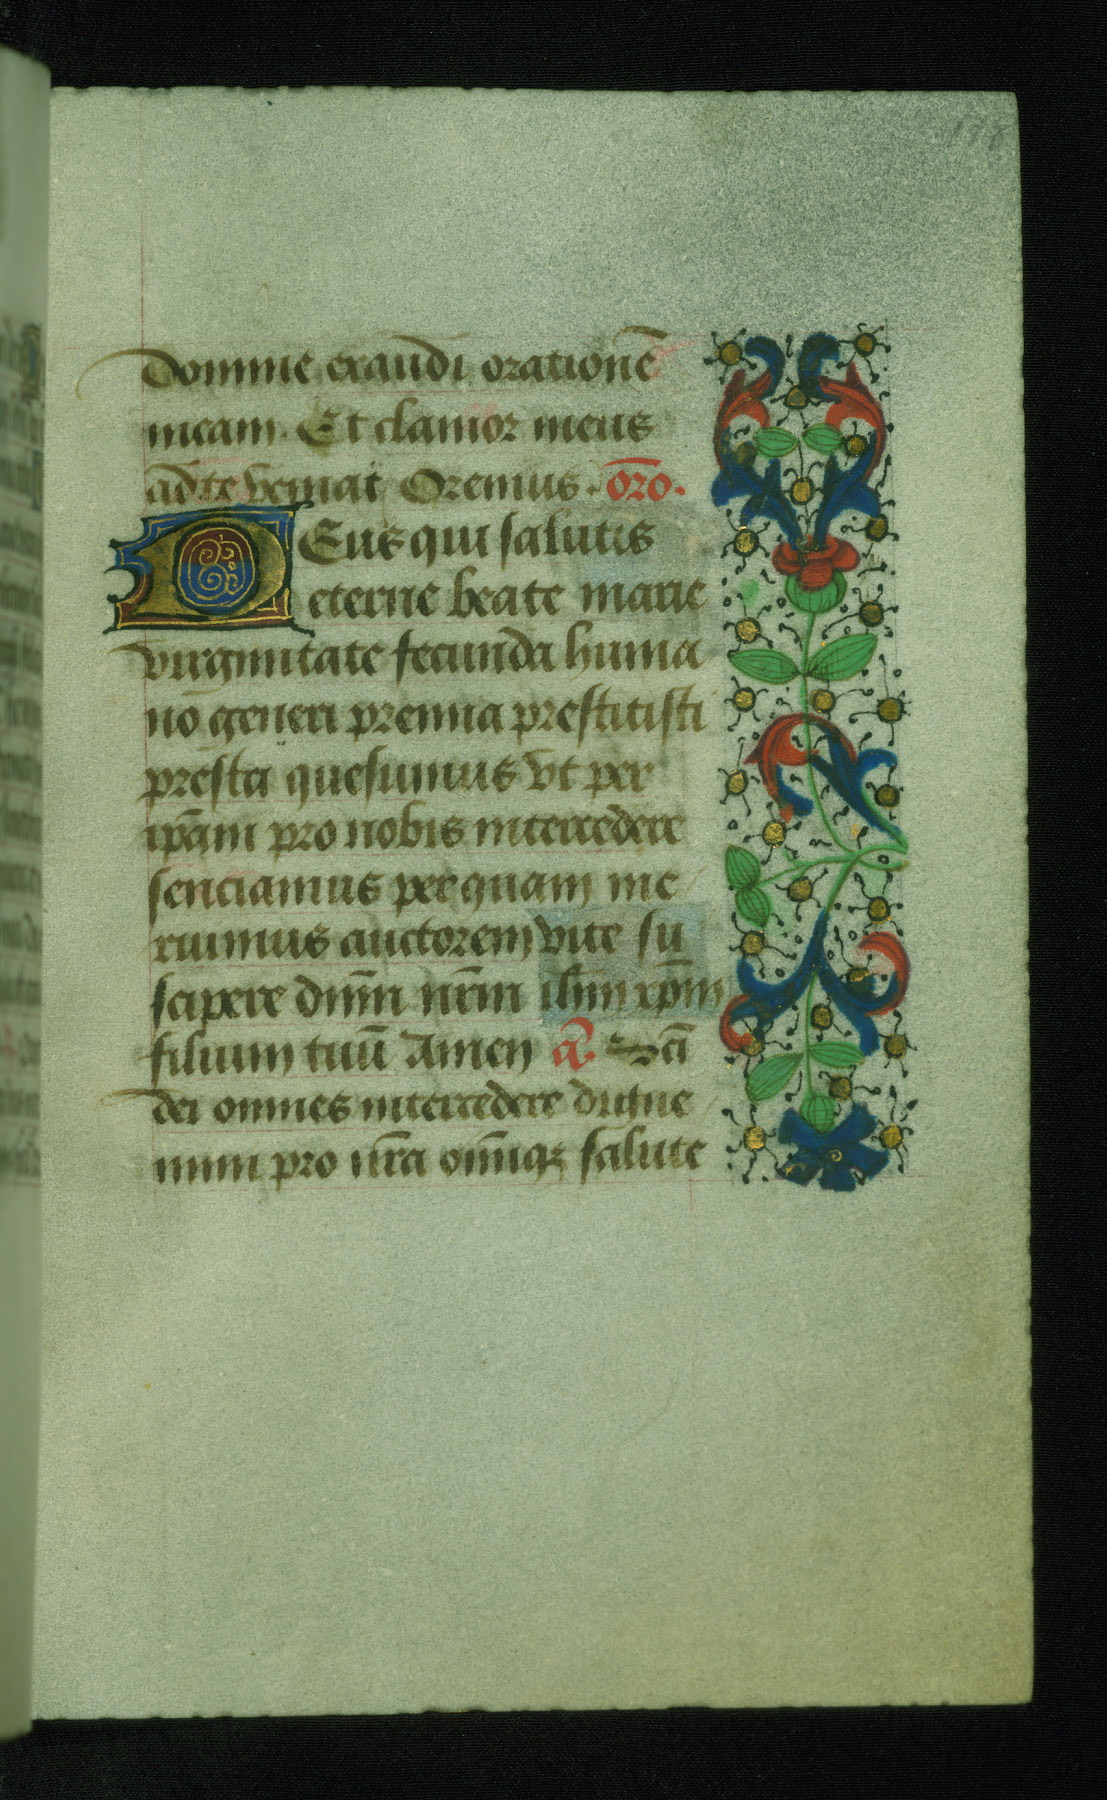 domine exaudi orationē
meam. Et clamor meus
ad te veniat Oremus. oro.
Deus qui salutis
eterne beate marie
virginitate fecunda huma
no generi premia prestitisti
presta quesumus vt per
ip̄am pro nobis intercedere
senciamus per quam me
ruimus auctorem vite su
scipere dn̄m nr̄m ihm xp̄m
filium tuū Amen a. Sc̄i
dei omnes intercedere digne
mini pro nr̄a omīqꝫ salute